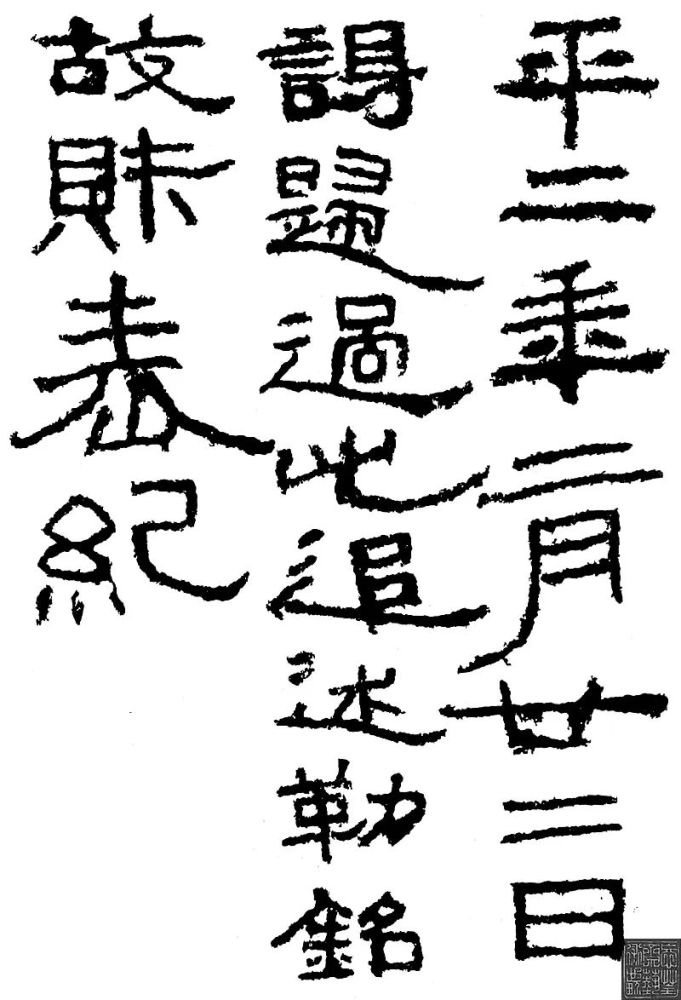 平二年二月廿二日
謁歸過此追述勒銘
故財表紀